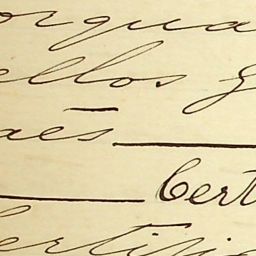 orqua
ellos y
aēs
Cert
ertifi